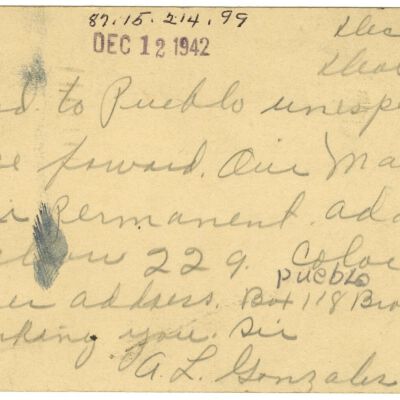 87.15.214.99
DEC 12 1942
Dec
Dear
to Pueblo unexpe
foward. Our Ma
Permanent. add
229. Colo
Pueblo
address. Box 118 Bro
king you. Sir
A. L. Gonzales